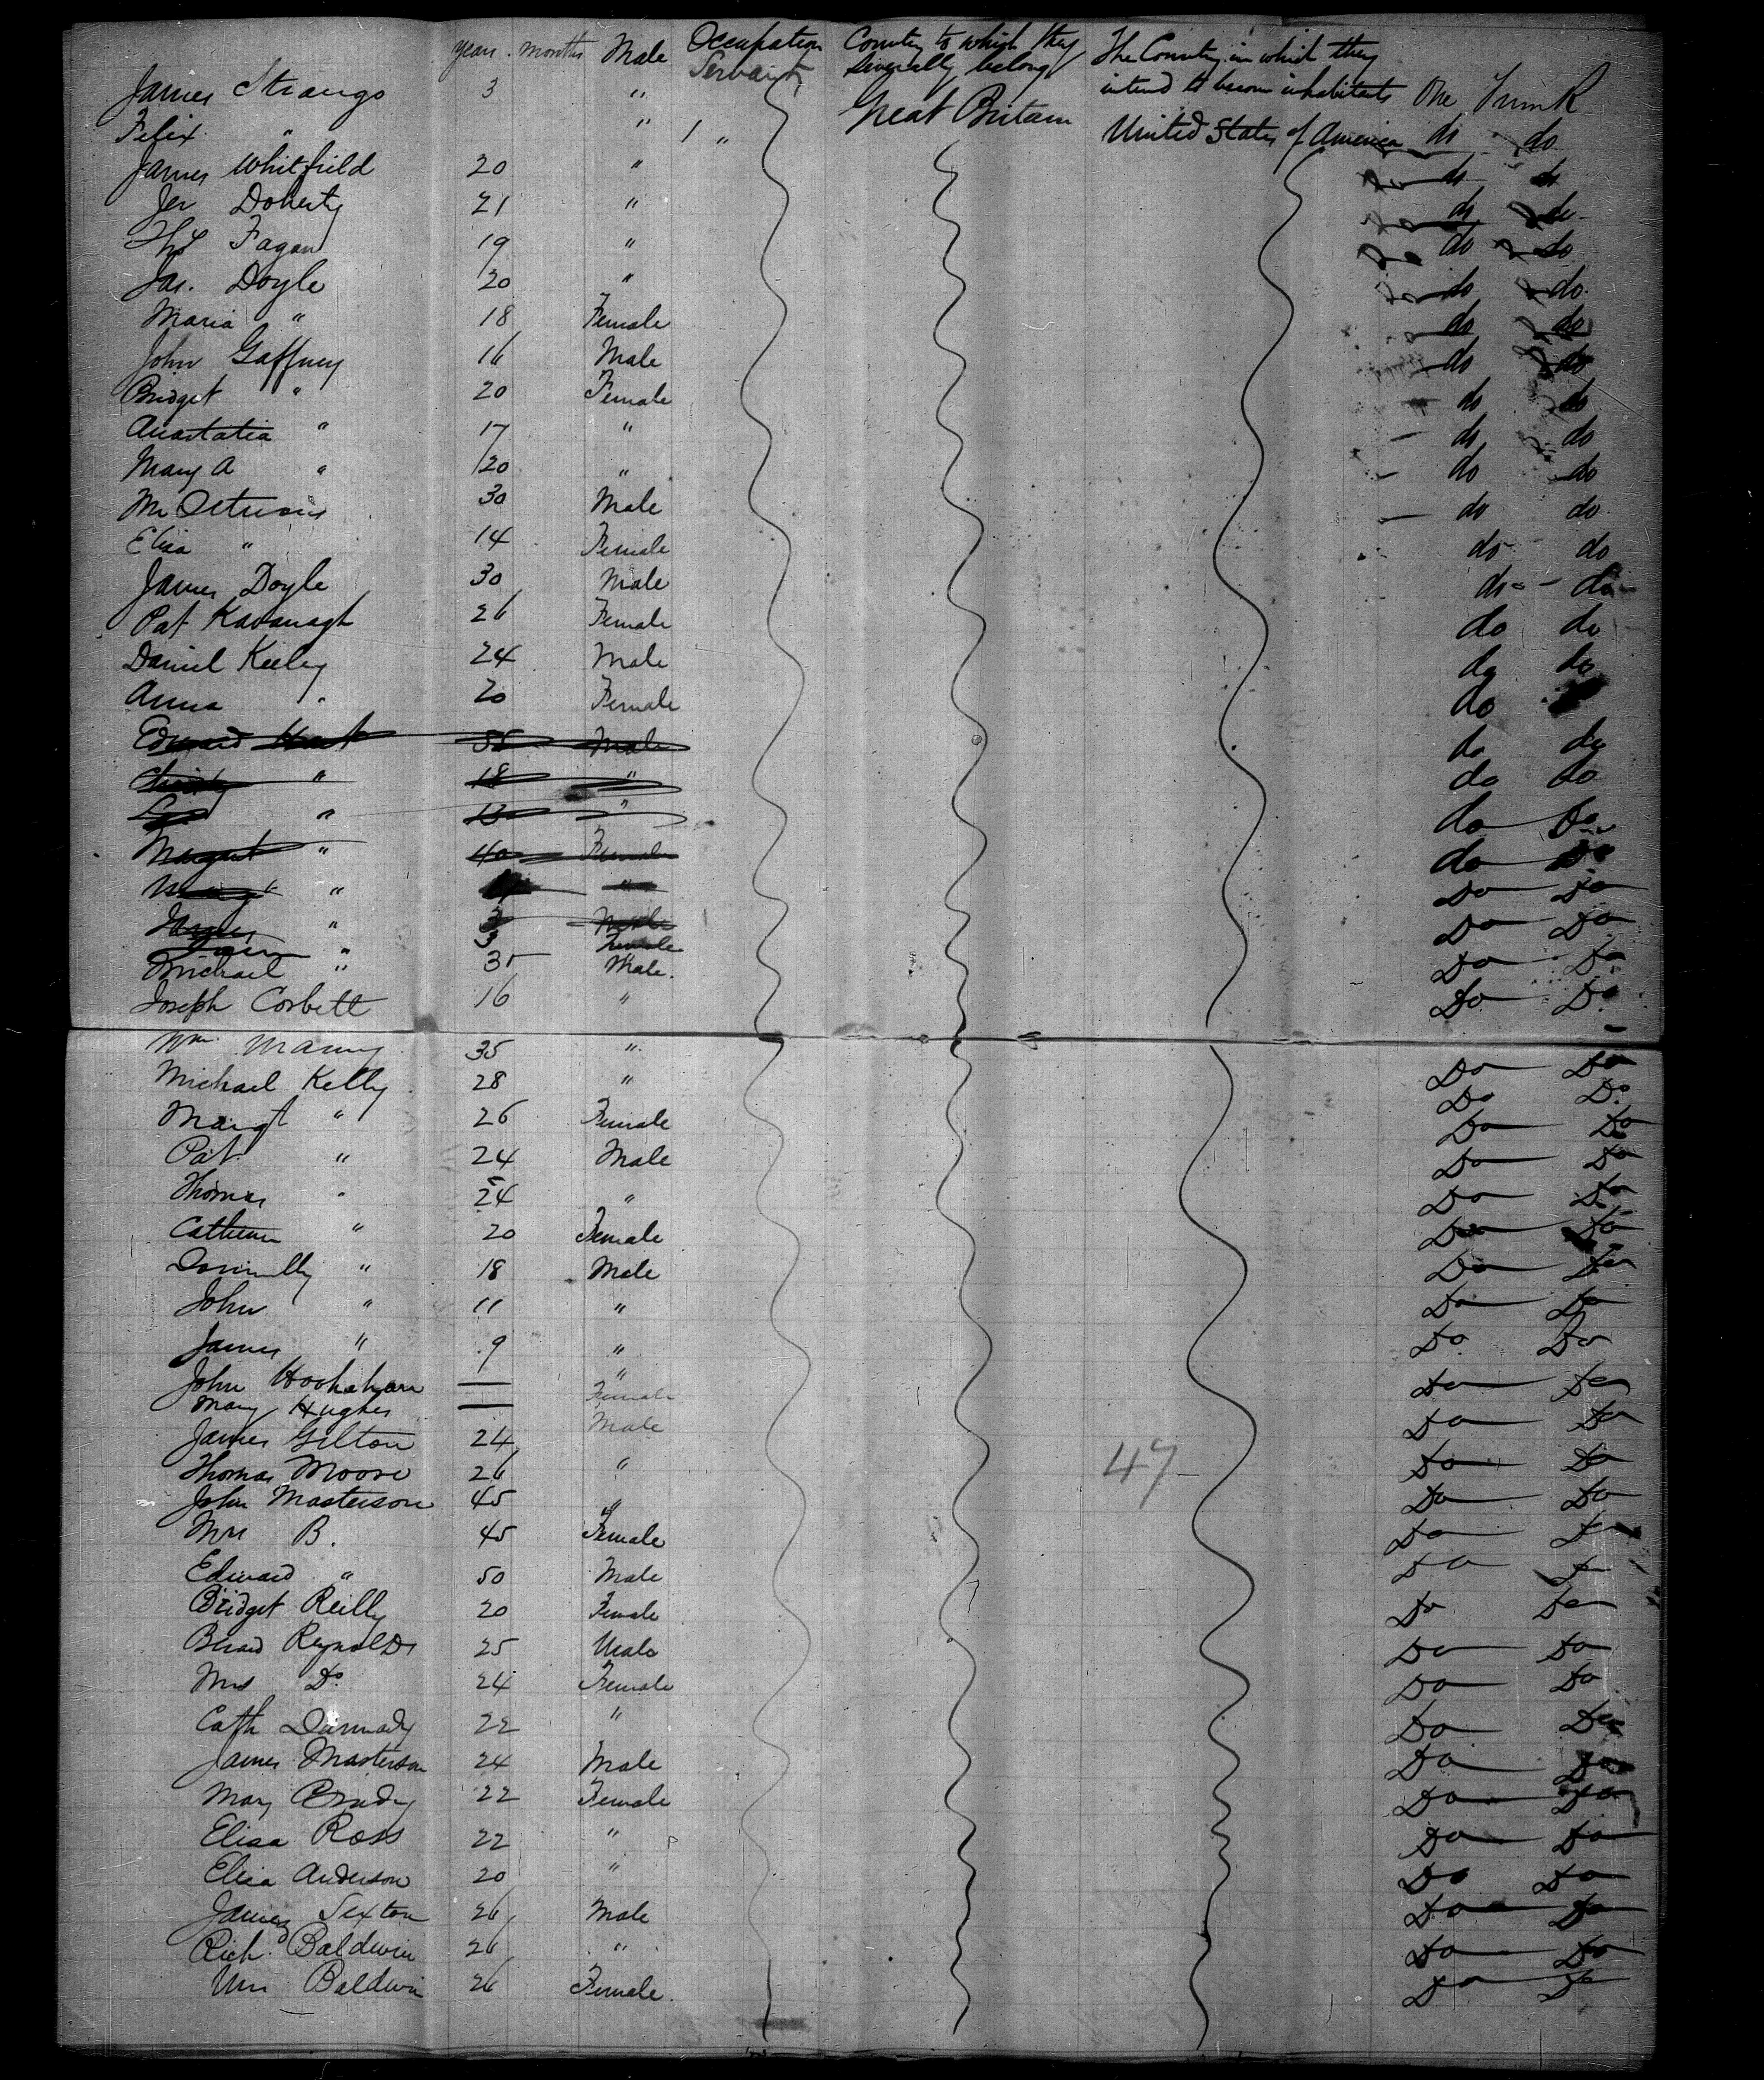 years. months Male Occupation Country to which they The Country in which they
Servant severally belong intend to become inhabitants One Trunk
James Strange 3 " Great Britain
Felix " " 1 " United States of America do do
James Whitfield 20 " do do
Jer Doherty 21 " do do
Thos Fagan 19 " do do
Jas. Doyle 20 " do do
Maria " 18 Female do do
John Gaffney 16 Male do do
Bridget " 20 Female do do
Anastatia " 17 " do do
Mary A " 20 " do do
30 Male do do
Eliza " 14 Female do do
James Doyle 30 Male do do
Pat Kavanagh 26 Female do do
Daniel Keeley 24 Male do do
Anna " 20 Female do
Edward Male do do
" 18 " do do
" 13 " do Do
Margaret " 40 Female do Do
" " Do Do
James " 3 Male Do Do
" 3 Female
Michael " 35 Male. Do Do
Joseph Corbett 16 " Do Do
Wm. Manny 35 " Do Do
Michael Kelly 28 " Do Do
Margt " 26 Female Do Do
Pat " 24 Male Do Do
Thomas " 24 " Do Do
Catherine " 20 Female Do Do
Donnelly " 18 Male Do Do
John " 11 " Do Do
James " 9 " Do Do
John — " Do Do
Mary Hughes — Female
James Gilton 24 Male Do Do
Thomas Moore 26 " 47 Do Do
John Masterson 45 " Do Do
Mrs B. 45 Female Do Do
Edward " 50 Male Do Do
Bridget Reilly 20 Female Do Do
Reynolds 25 Male Do Do
Mrs Do 24 Female Do Do
Cath 22 " Do Do
James Masterson 24 Male Do Do
Mary Brady 22 Female Do Do
Eliza Ross 22 " Do Do
Eliza Anderson 20 " Do Do
James Sexton 26 Male Do Do
Richd. Baldwin 26 " Do Do
Mrs Baldwin 26 Female. Do Do